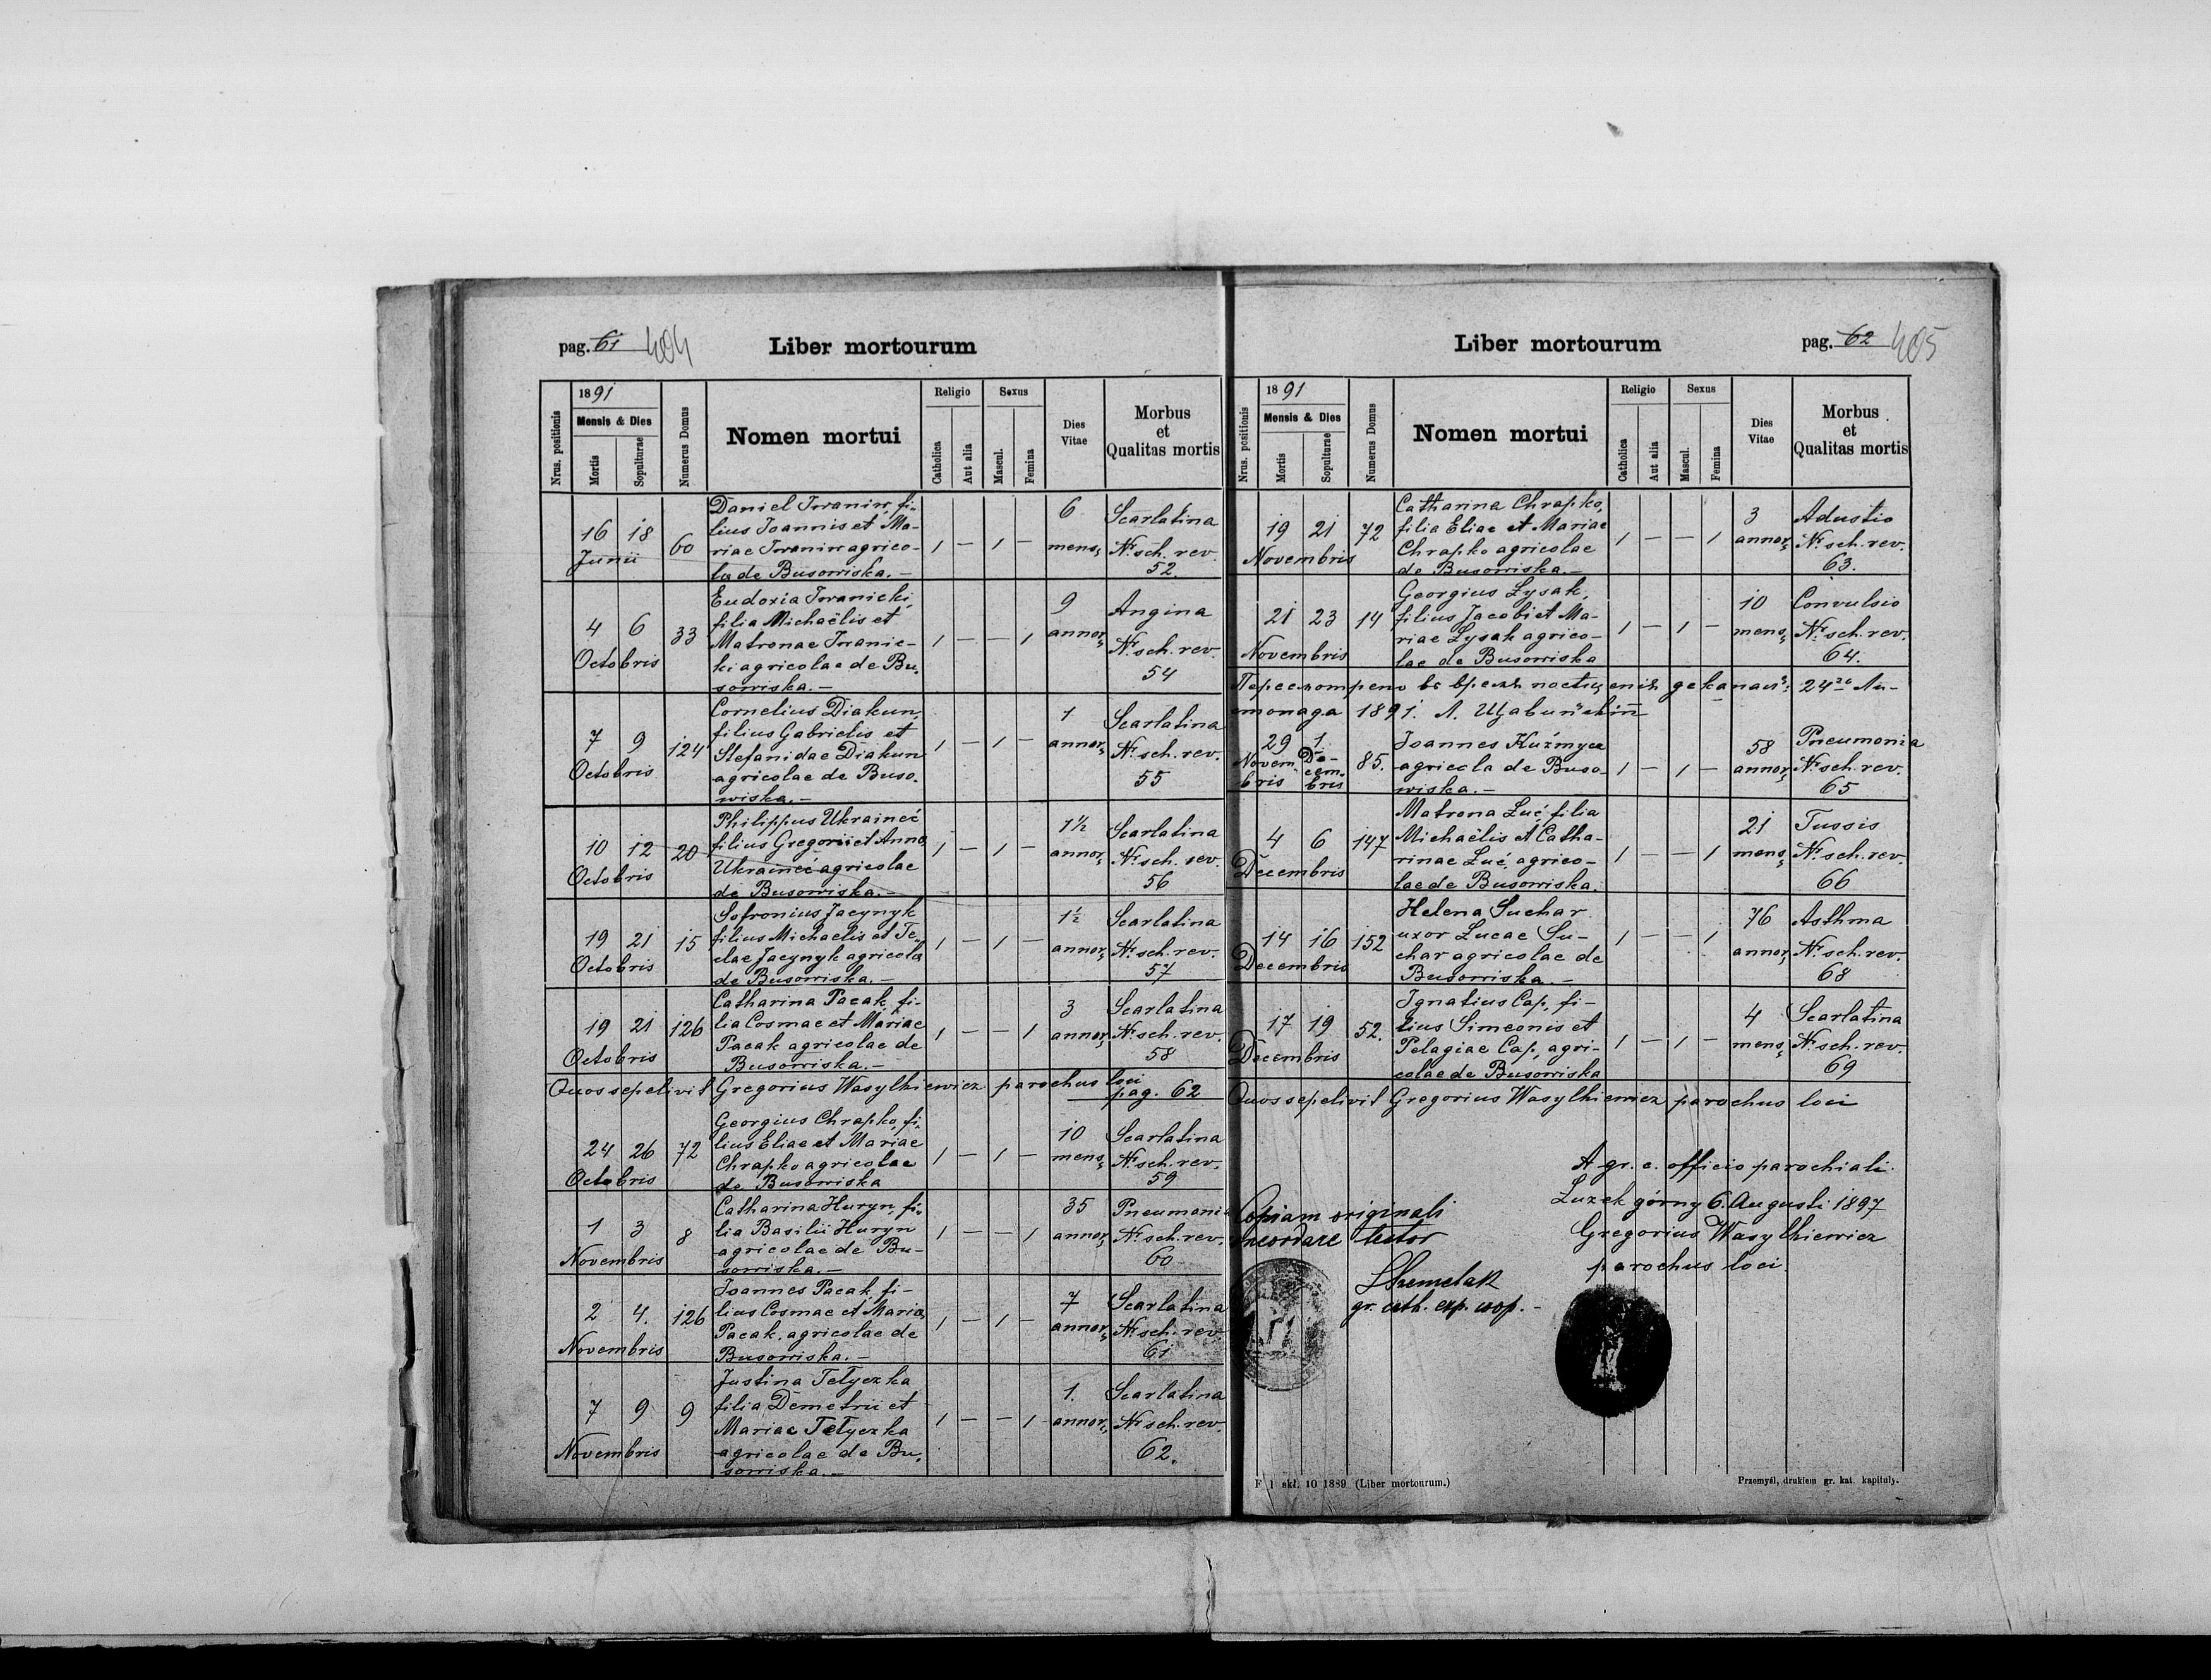 pag. 61 404
Liber mortuorum
1891
Mensis & Dies
Nrus. positionis
Mortis
Sopulturae
Numerus Domus
Nomen mortui
Religio
Catholica
Aut alia
Sexus
Mascul.
Femina
Dies Vitae
Morbus
et
Qualitas mortis
16 18 Junii 60
Daniel Iwaniw, fi-
lius Joannis et Ma-
riae Iwaniw agrico-
la de Busowiska.-
1 — 1 —
6 mens.
Scarlatina
Nr. sch. rev.
52.
4 6 Octobris 33
Eudoxia Iwanicki,
filia Michaëlis et
Matronae Iwanic-
ki agricolae de Bu-
sowiska.-
1 — — 1
9 annor.
Angina
Nr. sch. rev.
54
7 9 Octobris 124
Cornelius Diakun,
filius Gabrielis et
Stefanidae Diakun
agricolae de Buso-
wiska.-
1 — 1 —
1 annor.
Scarlatina
Nr. sch. rev.
55
10 12 Octobris 20
Philippus Ukraineć
filius Gregorii et Anna
Ukraineć agricolae
de Busowiska.-
1 — 1 —
1½ annor.
Scarlatina
Nr. sch. rev.
56
19 21 Octobris 15
Sofronius Jacynyk
filius Michaelis et Te-
clae Jacynyk agricola
de Busowiska.-
1 — 1 —
1½ annor.
Scarlatina
Nr. sch. rev.
57
19 21 Octobris 126
Catharina Pacak, fi-
lia Cosmae et Mariae
Pacak agricolae de
Busowiska.-
1 — — 1
3 annor.
Scarlatina
Nr. sch. rev.
58
Quos sepelivit Gregorius Wasylkiewicz parochus loci
pag. 62
24 26 Octobris 72
Georgius Chrapko, fi-
lius Eliae et Mariae
Chrapko agricolae
de Busowiska
1 — 1 —
10 mens.
Scarlatina
Nr. sch. rev.
59
1 3 Novembris 8
Catharina Huryn, fi-
lia Basilii Huryn
agricolae de Bu-
sowiska.-
1 — — 1
35 annor.
Pneumonia
Nr. sch. rev.
60
2 4. Novembris 126
Joannes Pacak, fi-
lius Cosmae et Maria
Pacak, agricolae de
Busowiska.-
1 — 1 —
7 annor.
Scarlatina
Nr. sch. rev.
61
7 9 Novembris 9
Justina Tetyczka
filia Demetrii et
Mariae Tetyczka
agricolae de Bu-
sowiska.-
1 — — 1
1. annor.
Scarlatina
Nr. sch. rev.
62.
Liber mortourum
pag. 62 405
1891
Mensis & Dies
Nrus. positionis
Mortis
Sopulturae
Numerus Domus
Nomen mortui
Religio
Catholica
Aut alia
Sexus
Mascul.
Femina
Dies Vitae
Morbus
et
Qualitas mortis
19 21 Novembris 72
Catharina Chrapko,
filia Eliae et Mariae
Chrapko agricolae
de Busowiska.-
1 — — 1
3 annor.
Adustio
Nr. sch. rev.
63.
21 23 Novembris 14
Georgius Lysak,
filius Jacobi et Ma-
riae Lysak agrico-
lae de Busowiska
1 — 1 —
10 mens.
Convulsio
Nr. sch. rev.
64.
Пересмотрено въ время посѣщенія деканал: 24го Ли-
1891.
29 Novembris 1 Decembris 85.
Joannes Kuźmycz
agricola de Buso-
wiska.-
1 — 1 —
58 annor.
Pneumonia
Nr. sch. rev.
65
4 6 Decembris 147
Matrona Luć, filia
Michaëlis et Catha-
rinae Luć, agrico-
lae de Busowiska.
1 — — 1
21 mens.
Tussis
Nr. sch. rev.
66
14 16 Decembris 152
Helena Suchar
uxor Lucae Su-
char agricolae de
Busowiska.-
1 — — 1
76 annor.
Asthma
Nr. sch. rev.
68
17 19 Decembris 52.
Ignatius Cap, fi-
lius Simeonis et
Pelagiae Cap, agri-
colae de Busowiska
1 — 1 —
4 mens.
Scarlatina
Nr. sch. rev.
69
Quos sepelivit Gregorius Wasylkiewicz parochus loci
A gr. c. officio parochiali
Łuzek górny 6. Augusti 1897
Gregorius Wasylkiewicz
parochus loci.
Copiam originali
testor
gr. cath. exp.
F. 1 akł. 10 1889 (Liber mortourum.)
Przemyśl, drukiem gr. kat. kapituły.